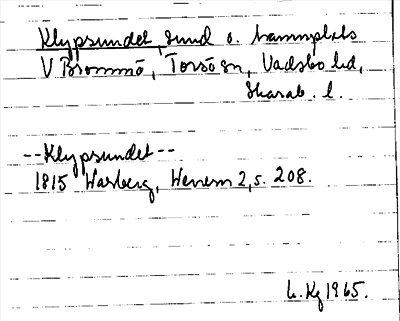 Klypsundet, sund o. hamnplats
V Brommö, Torsö sn, Vadsbo hd,
Skarab. l.
--Klypsundet--
1815 Warberg, Wenern 2, s. 208.
Kg 1965.